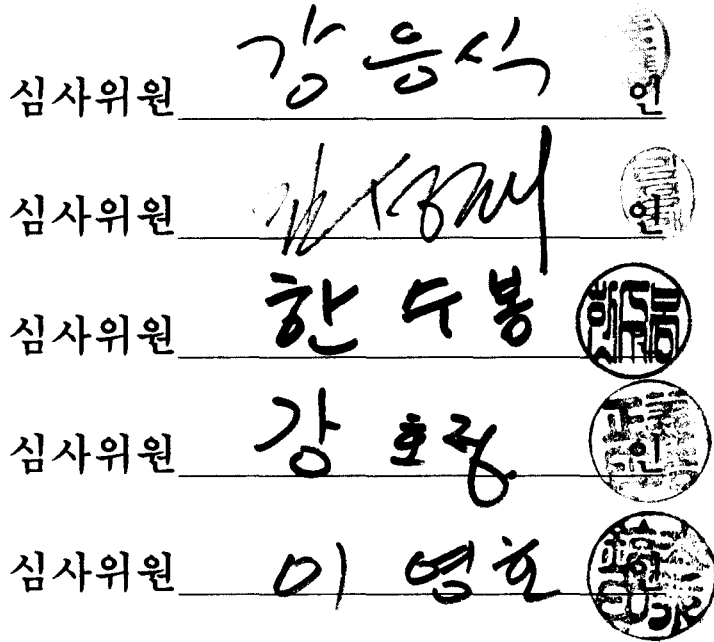 심사위원 강응식 인
심사위원 인
심사위원 한수봉
심사위원 강호정 인
심사위원 이영호 인